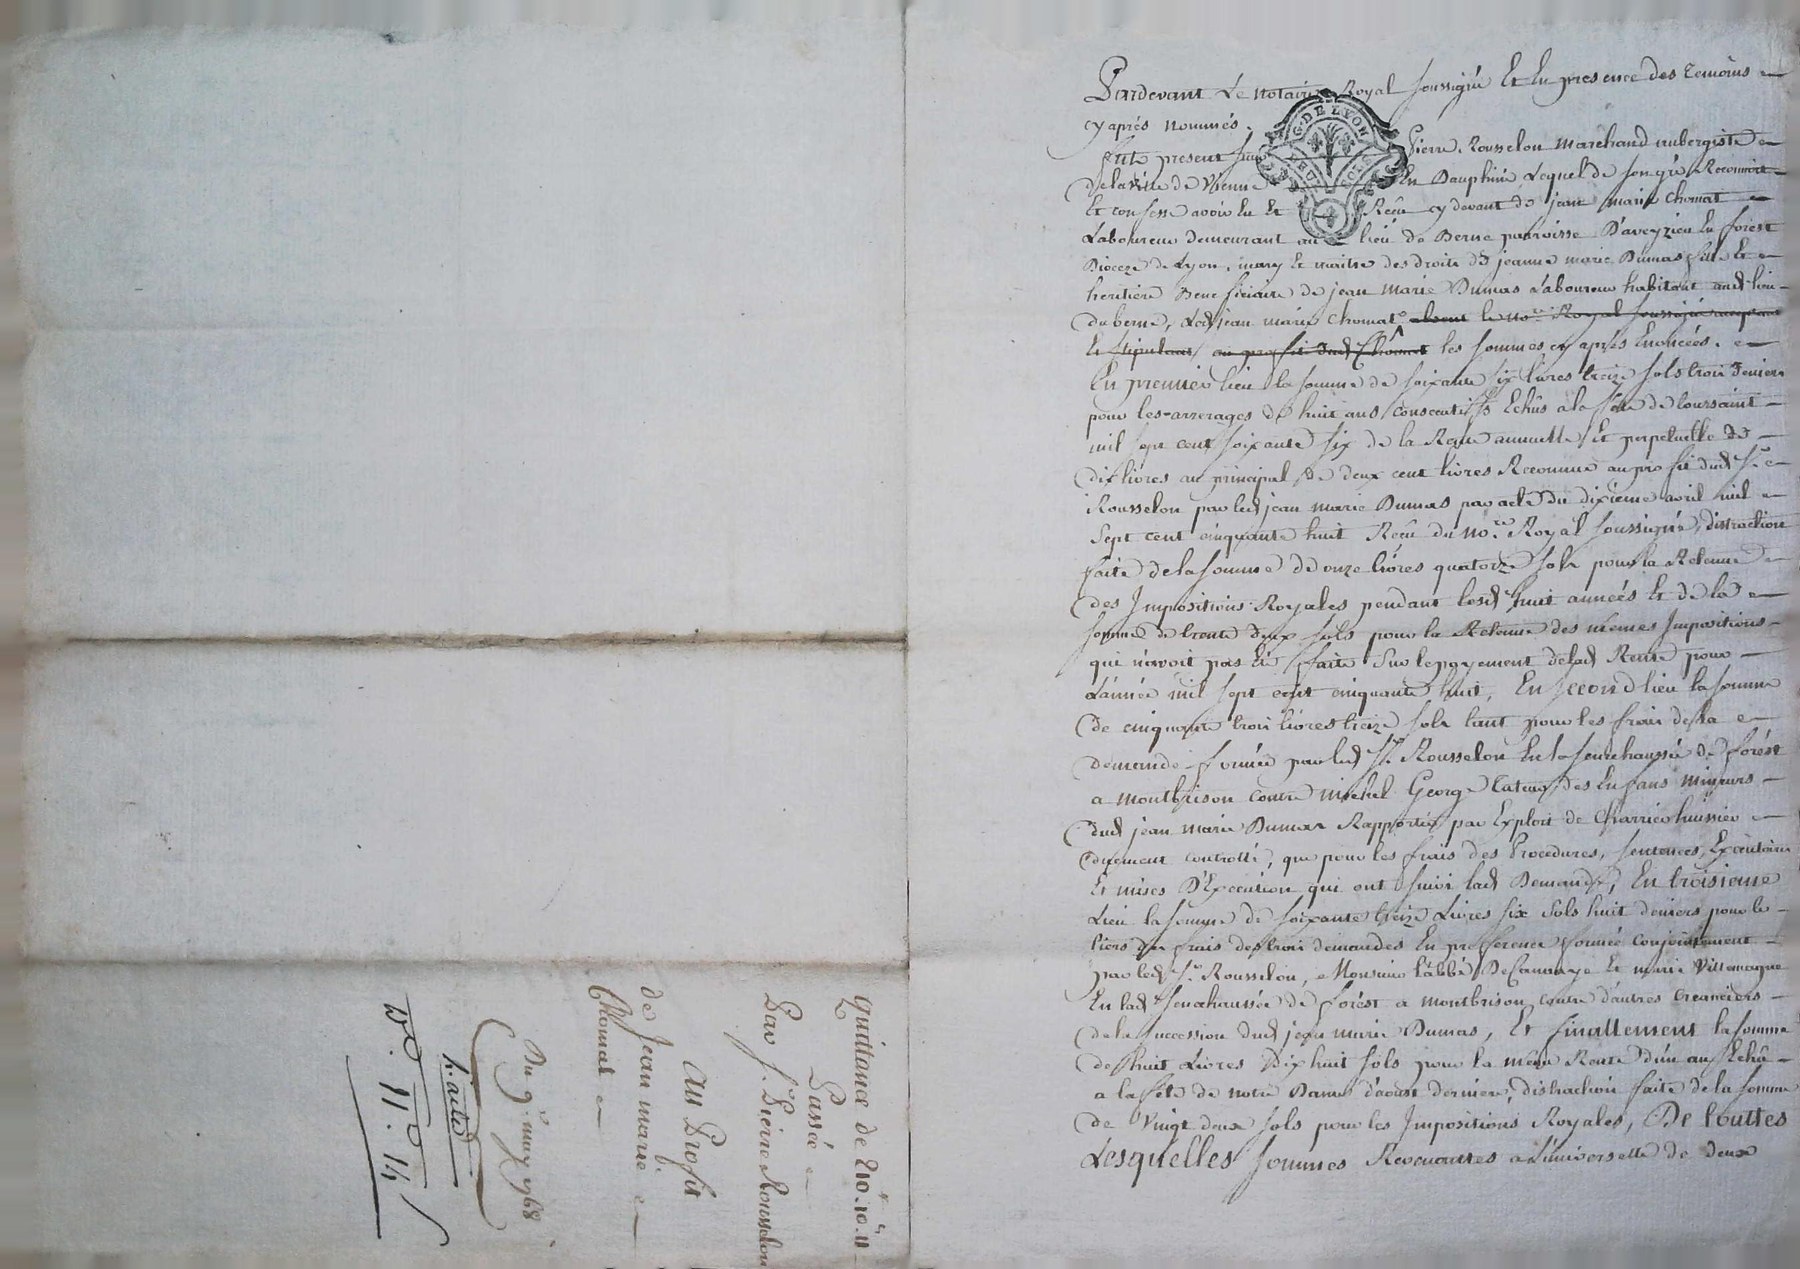 Pardevant Le notaire Royal soussigné Et En presence des temoins
cy aprés nommés.
G. DE LYON
fut present sieur Pierre Rousselon marchand aubergiste
de la ville de Vienne En Dauphiné Lequel de son gré Reconnoit
Et confesse avoir Eu Et Reçu cy devant de jean marie Chomat
Laboureur demeurant au lieu de Berne paroisse D'aveyzieu En forest
Dioceze de Lyon, mary Et maitre des droits de jeanne marie Dumas fille Et
heritiere Beneficiaire de jean Marie Dumas Laboureur habitant aud lieu
du berne, Led jean marie Chomat le no.re Royal soussigné acceptant
Et stipulant au profit dud Chomat les sommes cy aprés Enoncées.
En premier lieu la somme de soixante six livres treize sols trois deniers
pour les arrerages de huit ans consecutifs Echûs a la féte de toussaint
mil sept cent soixante six de la Rente annuelle Et perpetuelle de
dix livres au principal de deux cent livres Reconnue au profit dud S.r
Rousselon par led jean marie Dumas par acte du dixieme avril mil
sept cent cinquante huit Reçu du no.re Royal soussigné, distraction
faite de la somme de onze livres quatorze sols pour la Retenue
des Impositions Royales pendant lesd huit années Et de la
somme de trente deux sols pour la Retenue des mêmes Impositions
qui n'avoit pas Eté faite sur le payement delad Rente pour
L'année mil sept cent cinquante huit, En second lieu la somme
de cinquante trois livres treize sols tant pour les frais de la
demande formée par led S.r Rousselon En la senechaussée de forést
a montbrison contre michel George tuteur des Enfans mineurs
dud jean marie Dumas Rapportée par Exploit de Charrier huissier
duement controllé, que pour les frais des Procedures, sentences, Executoire
Et mises D'Execution qui ont suivi lad Demande, En troisieme
Lieu la somme de soixante treize Livres six sols huit deniers pour le
tiers des frais des trois demandes En preference formée conjointement
par led S.r Rousselon, Monsieur l'abbé Et marie Villemagne
En lad senechaussée de forést a montbrison contre d'autres creanciers
de la succession dud jean marie Dumas, Et finallement la somme
de huit Livres Dix huit sols pour la méme Rente d'un an Echû
a la féte de notre Dame d'aoust derniere, distraction faite de la somme
de Vingt deux sols pour les Impositions Royales, De touttes
Lesquelles sommes Revenantes a L'universelle de deux
quittance de 210.10.11
Passée
Par S.r Pierre Rousselon
Au Profit
de Jean marie
Chomat
Du 9.e may 1768